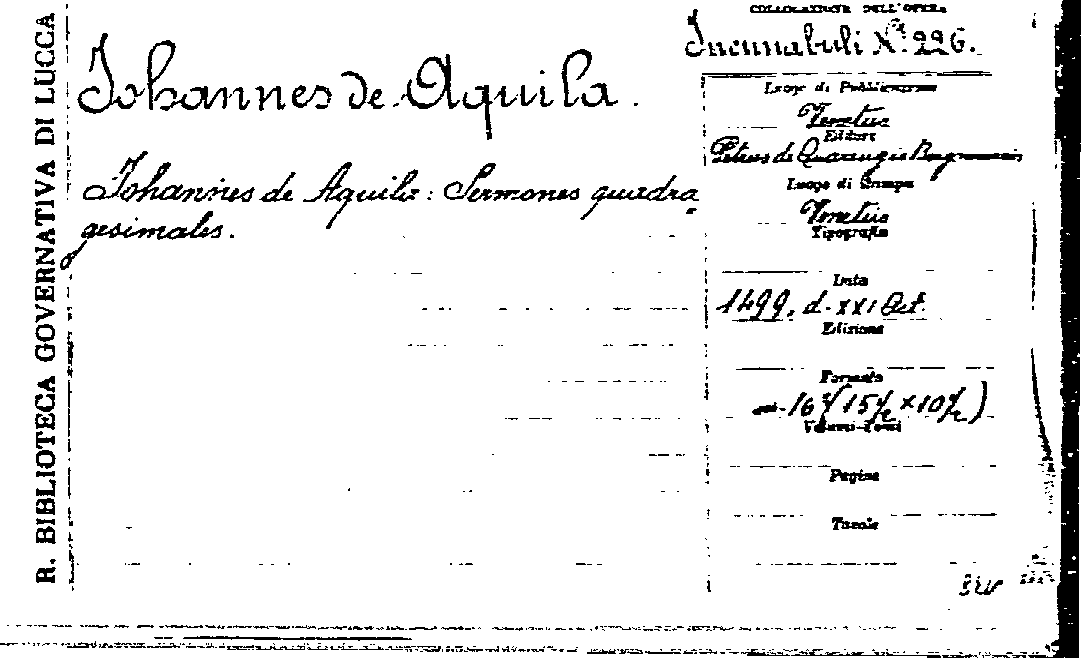 R. BIBLIOTECA GOVERNATIVA DI LUCCA
COLLOCAZIONE DELL'OPERA
Incunabuli N.º 226.
Johannes de Aquila.
Johannes de Aquila: Sermones quadra
gesimales.
Luogo di Pubblicazione
Venetiis
Editore
Petrus de Quarengiis
Luogo di Stampa
Venetiis
Tipografia
Data
1499, d. XXI Oct.
Edizione
Formato
16º (15 ½ × 10 ½)
Volumi-Tomi
Pagine
Tavole